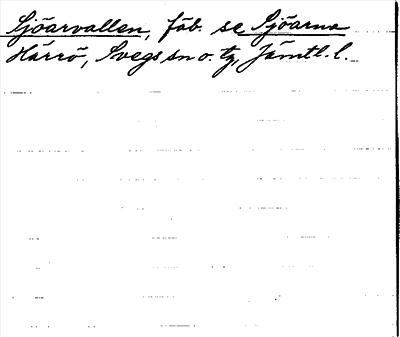 Sjöarvallen, fäb. se Sjöarna
Härrö, Svegs sn o. tg, Jämtl. l.